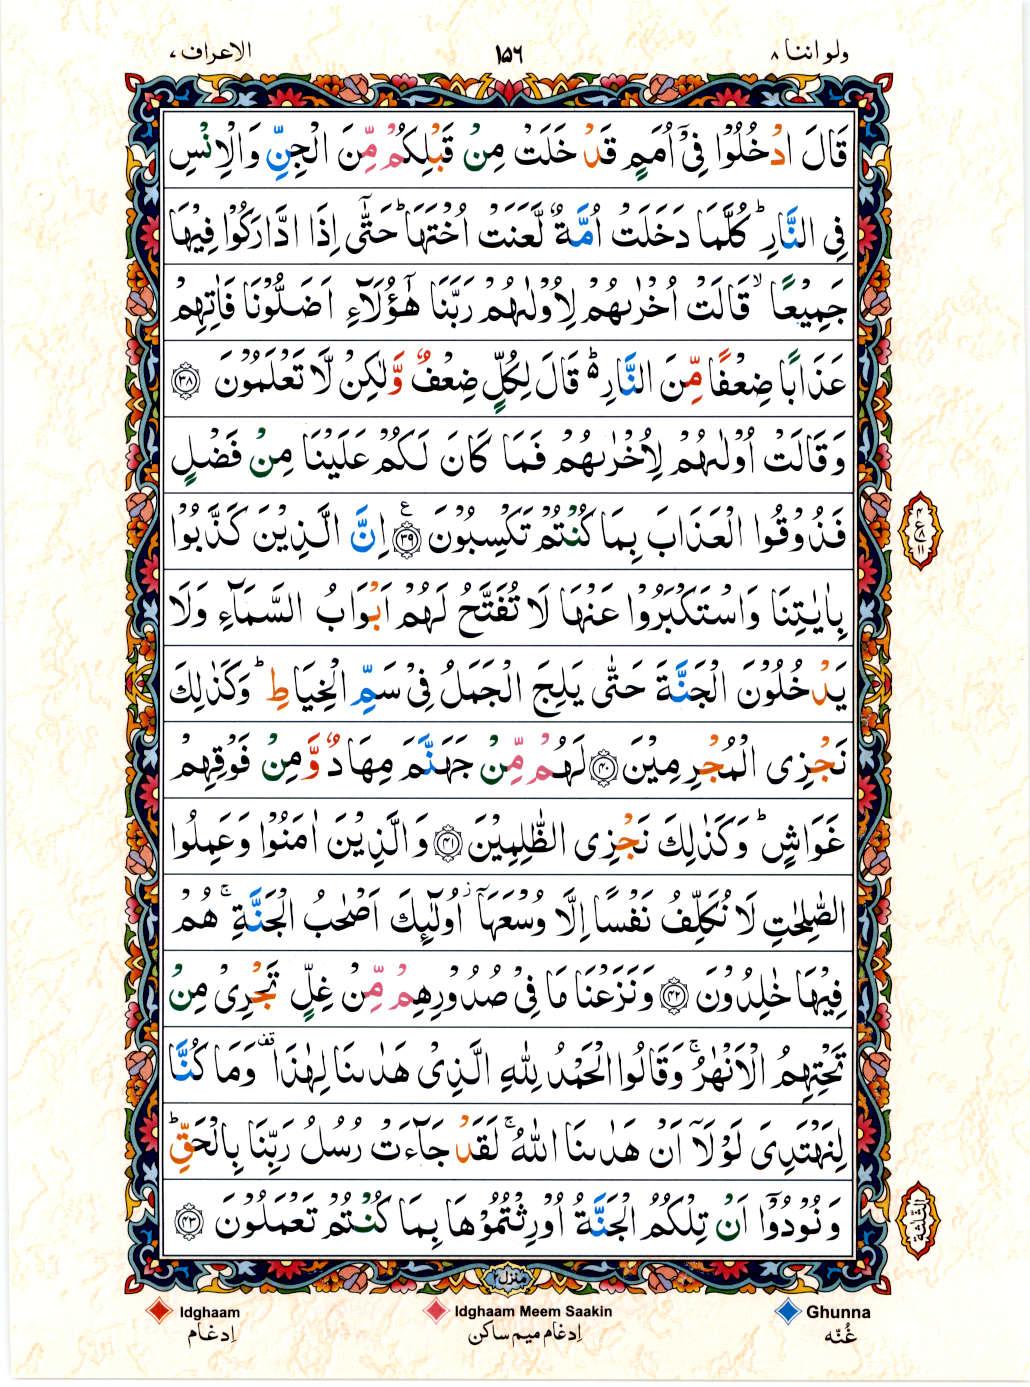 ولو اننا ۸ ۱۵۶ الاعراف ۷
قَالَ ادْخُلُوْا فِیْۤ اُمَمٍ قَدْ خَلَتْ مِنْ قَبْلِكُمْ مِّنَ الْجِنِّ وَالْاِنْسِ
فِی النَّارِ ؕ كُلَّمَا دَخَلَتْ اُمَّةٌ لَّعَنَتْ اُخْتَهَا ؕ حَتّٰۤی اِذَا ادَّارَكُوْا فِیْهَا
جَمِیْعًا ۙ قَالَتْ اُخْرٰىهُمْ لِاُوْلٰىهُمْ رَبَّنَا هٰۤؤُلَآءِ اَضَلُّوْنَا فَاٰتِهِمْ
عَذَابًا ضِعْفًا مِّنَ النَّارِ ؕ۬ قَالَ لِكُلٍّ ضِعْفٌ وَّلٰكِنْ لَّا تَعْلَمُوْنَ ﴿۳۸﴾
وَقَالَتْ اُوْلٰىهُمْ لِاُخْرٰىهُمْ فَمَا كَانَ لَكُمْ عَلَیْنَا مِنْ فَضْلٍ
فَذُوْقُوا الْعَذَابَ بِمَا كُنْتُمْ تَكْسِبُوْنَ ﴿۳۹﴾ ع اِنَّ الَّذِیْنَ كَذَّبُوْا
بِاٰیٰتِنَا وَاسْتَكْبَرُوْا عَنْهَا لَا تُفَتَّحُ لَهُمْ اَبْوَابُ السَّمَآءِ وَلَا
یَدْخُلُوْنَ الْجَنَّةَ حَتّٰی یَلِجَ الْجَمَلُ فِیْ سَمِّ الْخِیَاطِ ؕ وَكَذٰلِكَ
نَجْزِی الْمُجْرِمِیْنَ ﴿۴۰﴾ لَهُمْ مِّنْ جَهَنَّمَ مِهَادٌ وَّمِنْ فَوْقِهِمْ
غَوَاشٍ ؕ وَكَذٰلِكَ نَجْزِی الظّٰلِمِیْنَ ﴿۴۱﴾ وَالَّذِیْنَ اٰمَنُوْا وَعَمِلُوا
الصّٰلِحٰتِ لَا نُكَلِّفُ نَفْسًا اِلَّا وُسْعَهَاۤ ؗ اُولٰٓئِكَ اَصْحٰبُ الْجَنَّةِ ۚ هُمْ
فِیْهَا خٰلِدُوْنَ ﴿۴۲﴾ وَنَزَعْنَا مَا فِیْ صُدُوْرِهِمْ مِّنْ غِلٍّ تَجْرِیْ مِنْ
تَحْتِهِمُ الْاَنْهٰرُ ۚ وَقَالُوا الْحَمْدُ لِلّٰهِ الَّذِیْ هَدٰىنَا لِهٰذَا ۫ وَمَا كُنَّا
لِنَهْتَدِیَ لَوْلَاۤ اَنْ هَدٰىنَا اللّٰهُ ۚ لَقَدْ جَآءَتْ رُسُلُ رَبِّنَا بِالْحَقِّ ؕ
وَنُوْدُوْۤا اَنْ تِلْكُمُ الْجَنَّةُ اُوْرِثْتُمُوْهَا بِمَا كُنْتُمْ تَعْمَلُوْنَ ﴿۴۳﴾
۴ ع ۸ ۱۱
الثلثة
منزل ۲
Idghaam Idghaam Meem Saakin Ghunna
اِدغَام اِدغَام میم ساکن غُنّه